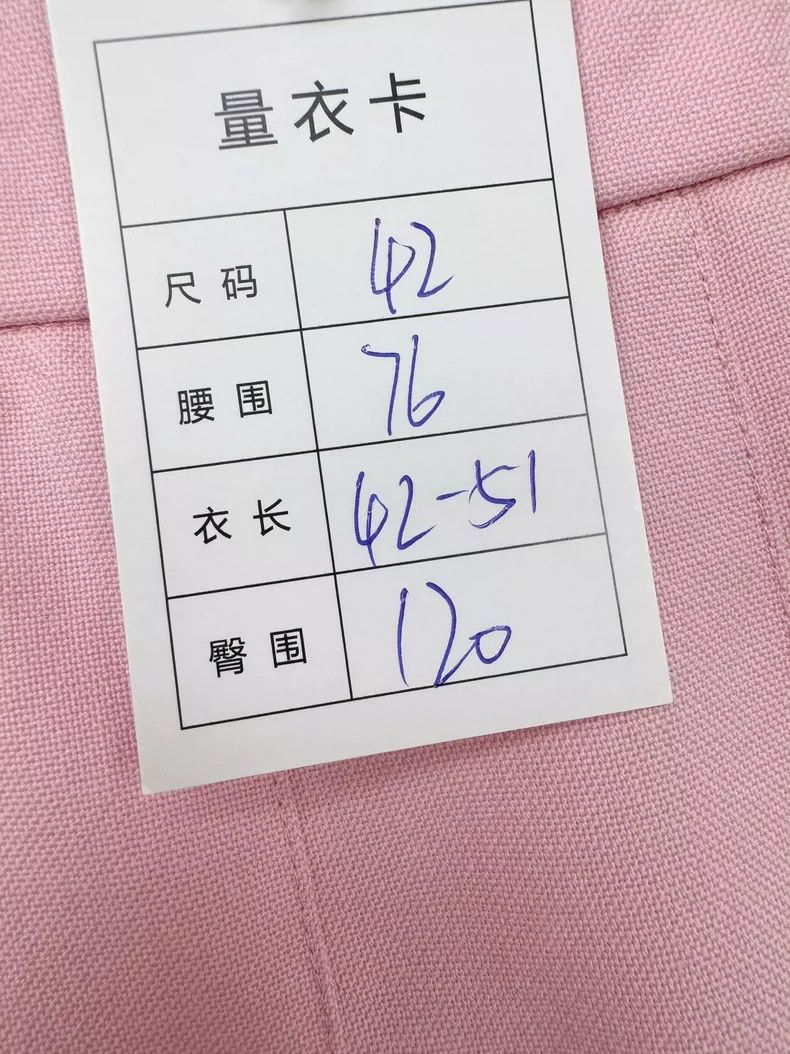 量衣卡
尺码 42
腰围 76
衣长 42-51
臀围 120